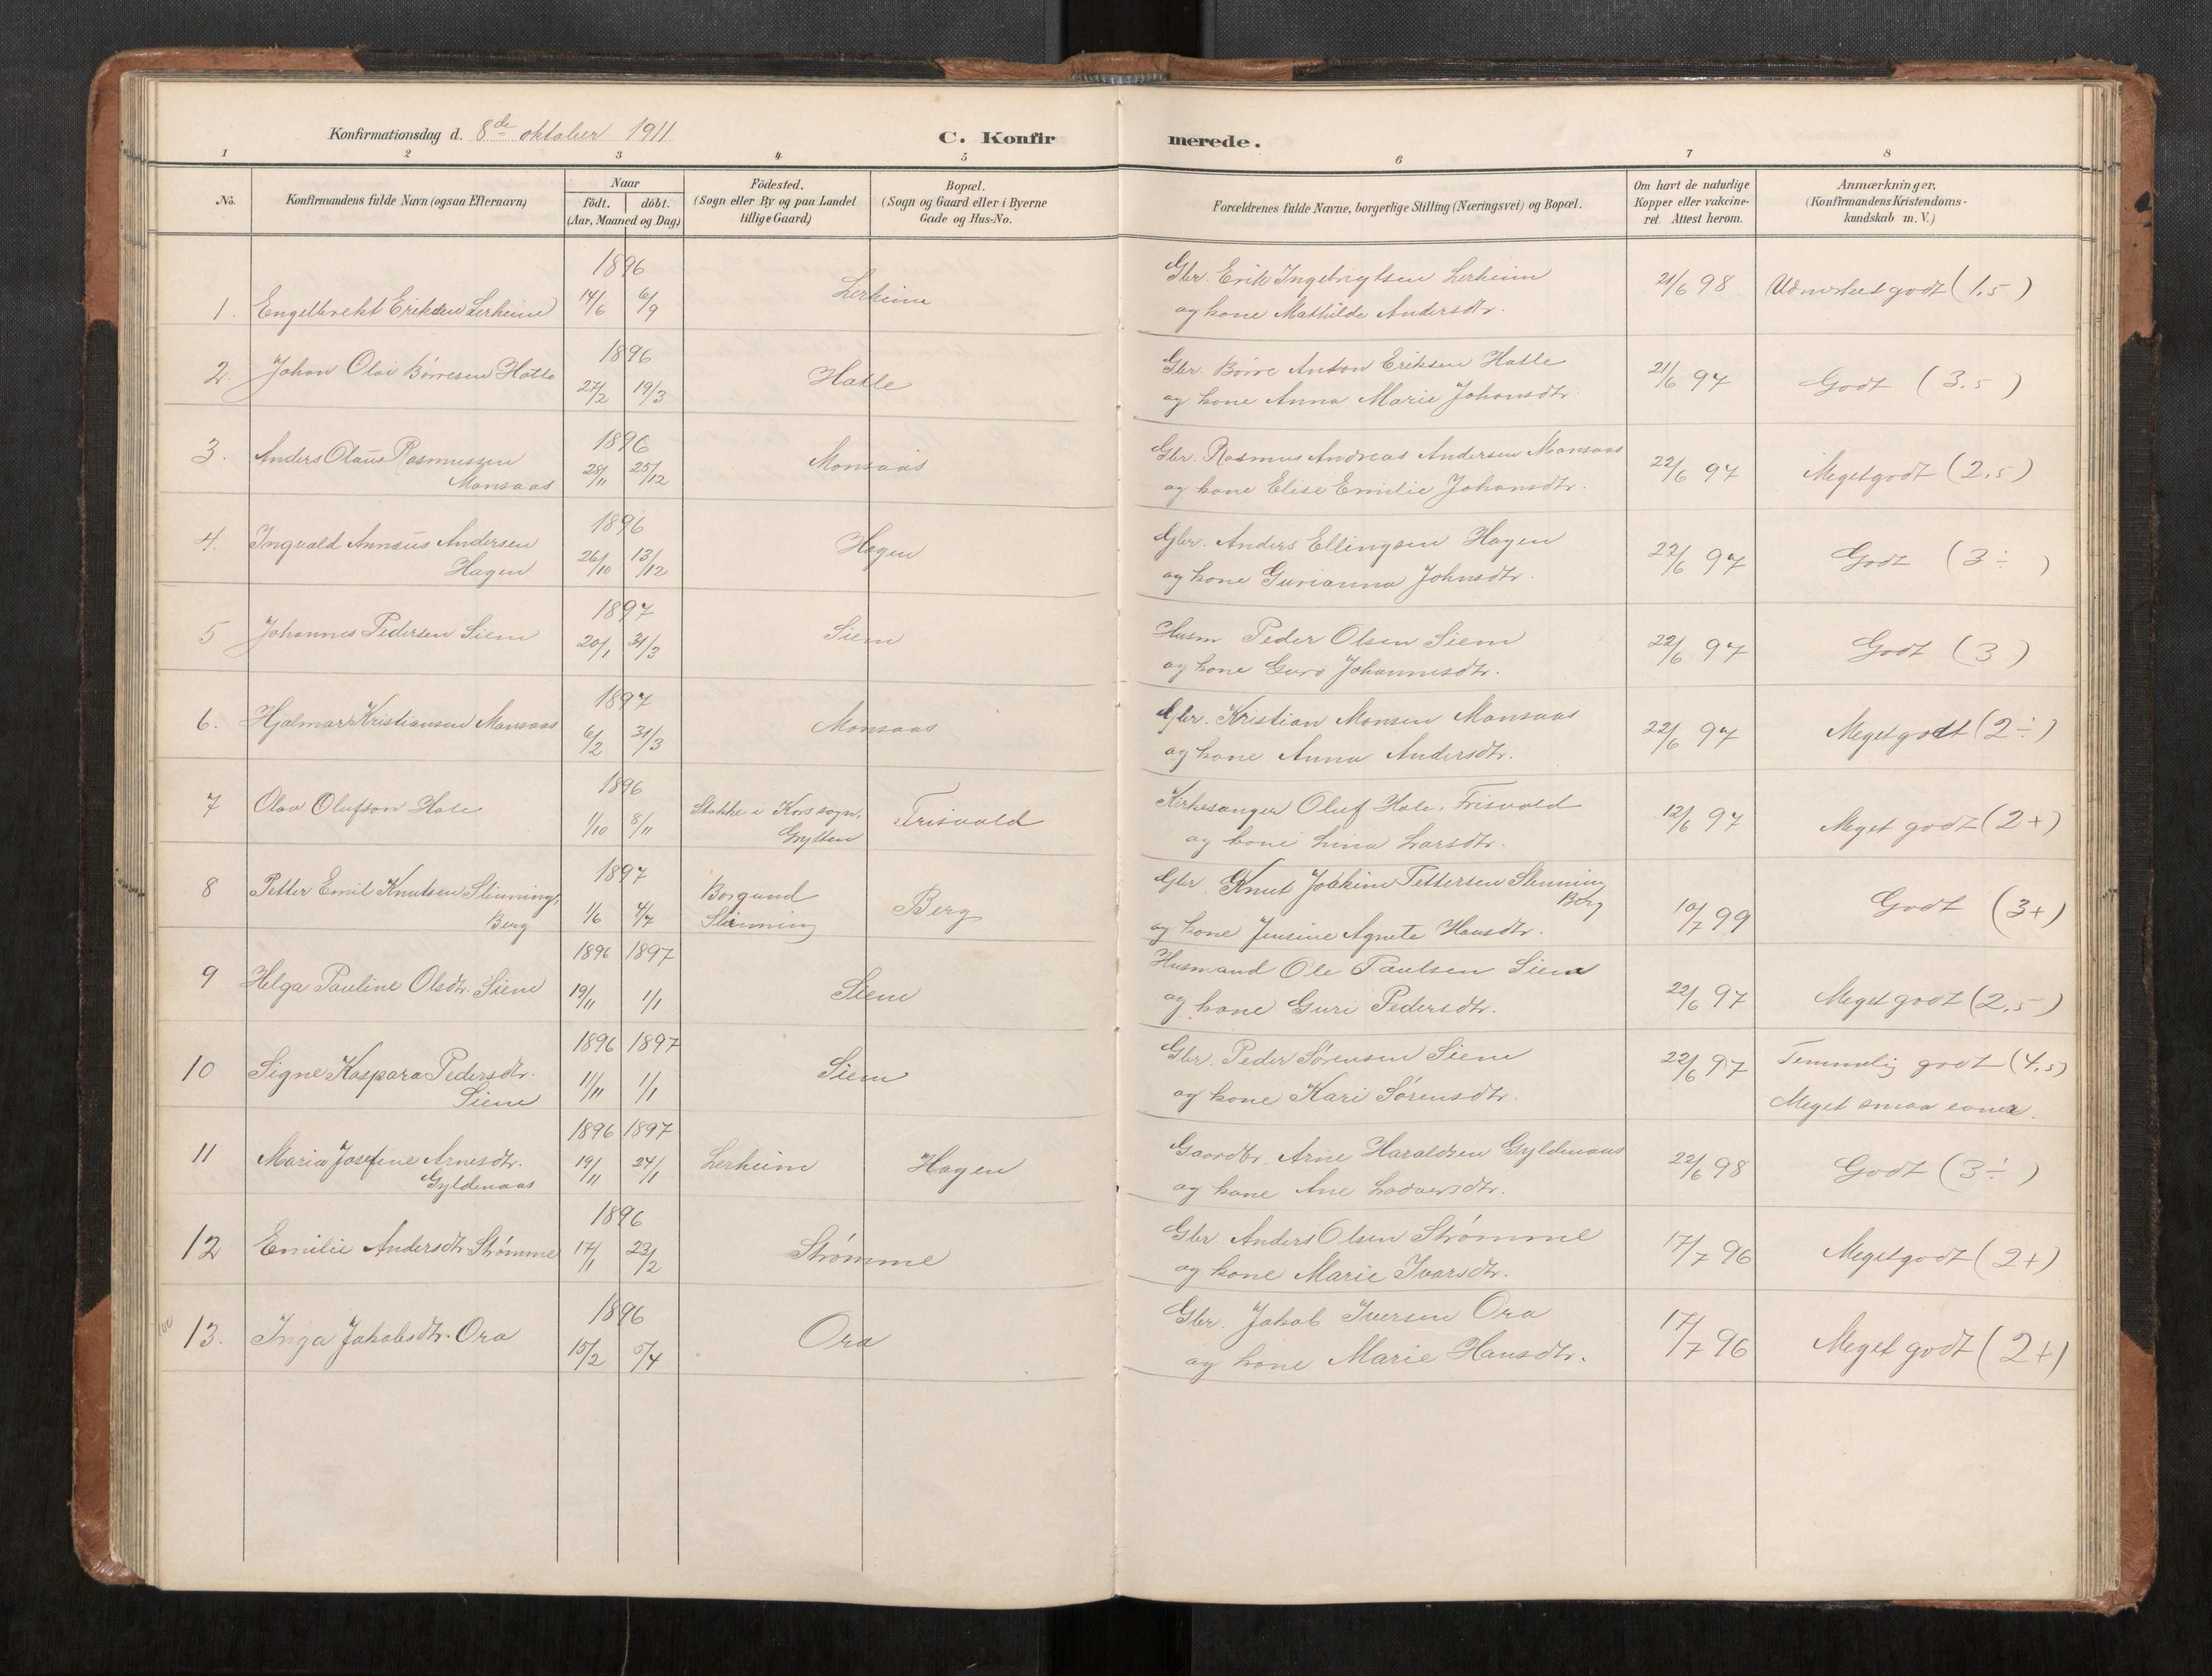 Konfirmationsdag d. 8de oktober 1911
C. Konfirmerede.
1 2 3 4 5 6 7 8
No.
Konfirmandens fulde Navn (ogsaa Efternavn)
Naar
födt. döbt.
(Aar, Maaned og Dag)
Födested.
(Sogn eller By og paa Landet
tillige Gaard)
Bopæl.
(Sogn og Gaard eller i Byerne
Gade og Hus-No.
Forældrenes fulde Navne, borgerlige Stilling (Næringsvei) og Bopæl.
Om havt de naturlige
Kopper eller vakcine-
ret. Attest herom.
Anmærkninger.
(Konfirmandens Kristendoms-
kundskab m. V.)
1896
1. Engelbrekt Eriksen Lerheim 14/6 6/9 Lerheim
Gbr. Erik Ingebrigtsen Lerheim
og kone Mathilde Andersdtr. 21/6 98 Udmerket godt (1,5)
1896
2. Johan Olai Börresen Hatle 27/2 19/3 Hatle
Gbr. Börre Anton Eriksen Hatle
og kone Anna Marie Johansdtr. 21/6 97 Godt (3.5)
1896
3. Anders Olaus Rasmussen
Monsaas 28/11 25/12 Monsaas
Gbr. Rasmus Andreas Andersen Monsaas
og kone Elise Emilie Johansdtr. 22/6 97 Meget godt (2,5)
1896
4. Ingvald Annæus Andersen
Hagen 26/10 13/12 Hagen
Gbr. Anders Ellingsen Hagen
og kone Gurianna Johnsdtr. 22/6 97 Godt (3 ÷ )
1897
5 Johannes Pedersen Siem 20/1 31/3 Siem
Husm Peder Olsen Siem
og kone Guro Johannesdtr. 22/6 97 Godt (3)
1897
6. Hjalmar Kristiansen Monsaas 6/2 31/3 Monsaas
Gbr. Kristian Monsen Monsaas
og kone Anna Andersdtr. 22/6 97 Meget godt (2÷)
1896
7 Olav Olufson Hole 1/10 8/11 Stokke i Kors sogn,
Grytten Frisvold
Kirkesanger Oluf Hole, Frisvold
og kone Lina Larsdtr. 12/6 97 Meget godt (2+)
1897
8 Petter Emil Knutsen Slinning,
Berg 1/6 4/7 Borgund
Slinning Berg
Gbr. Knut Joakim Pettersen Slinning
Berg
og kone Jensine Agnete Hansdtr. 10/7 99 Godt (3+)
1896 1897
9 Helga Pauline Olsdtr. Siem 19/11 1/1 Siem
Husmand Ole Paulsen Siem
og kone Guri Pedersdtr. 22/6 97 Meget godt (2,5)
1896 1897
10 Signe Kaspara Pedersdtr.
Siem 11/11 1/1 Siem
Gbr. Peder Sörensen Siem
og kone Kari Sörensdtr. 22/6 97 Temmelig godt (4,5)
Meget smaa evner.
1896 1897
11 Maria Josefine Arnesdtr.
Gyldenaas 19/11 24/1 Lerheim Hagen
Gaardbr. Arne Haraldsen Gyldenaas
og kone Ane Ladversdtr. 22/6 98 Godt (3÷)
1896
12 Emilie Andersdtr. Strømme 17/1 23/2 Strømme
Gbr Anders Olsen Strømme
og kone Marie Ivarsdtr. 17/7 96 Meget godt (2+)
1896
13. Inga Jakobsdtr. Ora 15/2 5/4 Ora
Gbr. Jakob Iversen Ora
og kone Marie Hansdtr. 17/7 96 Meget godt (2+)